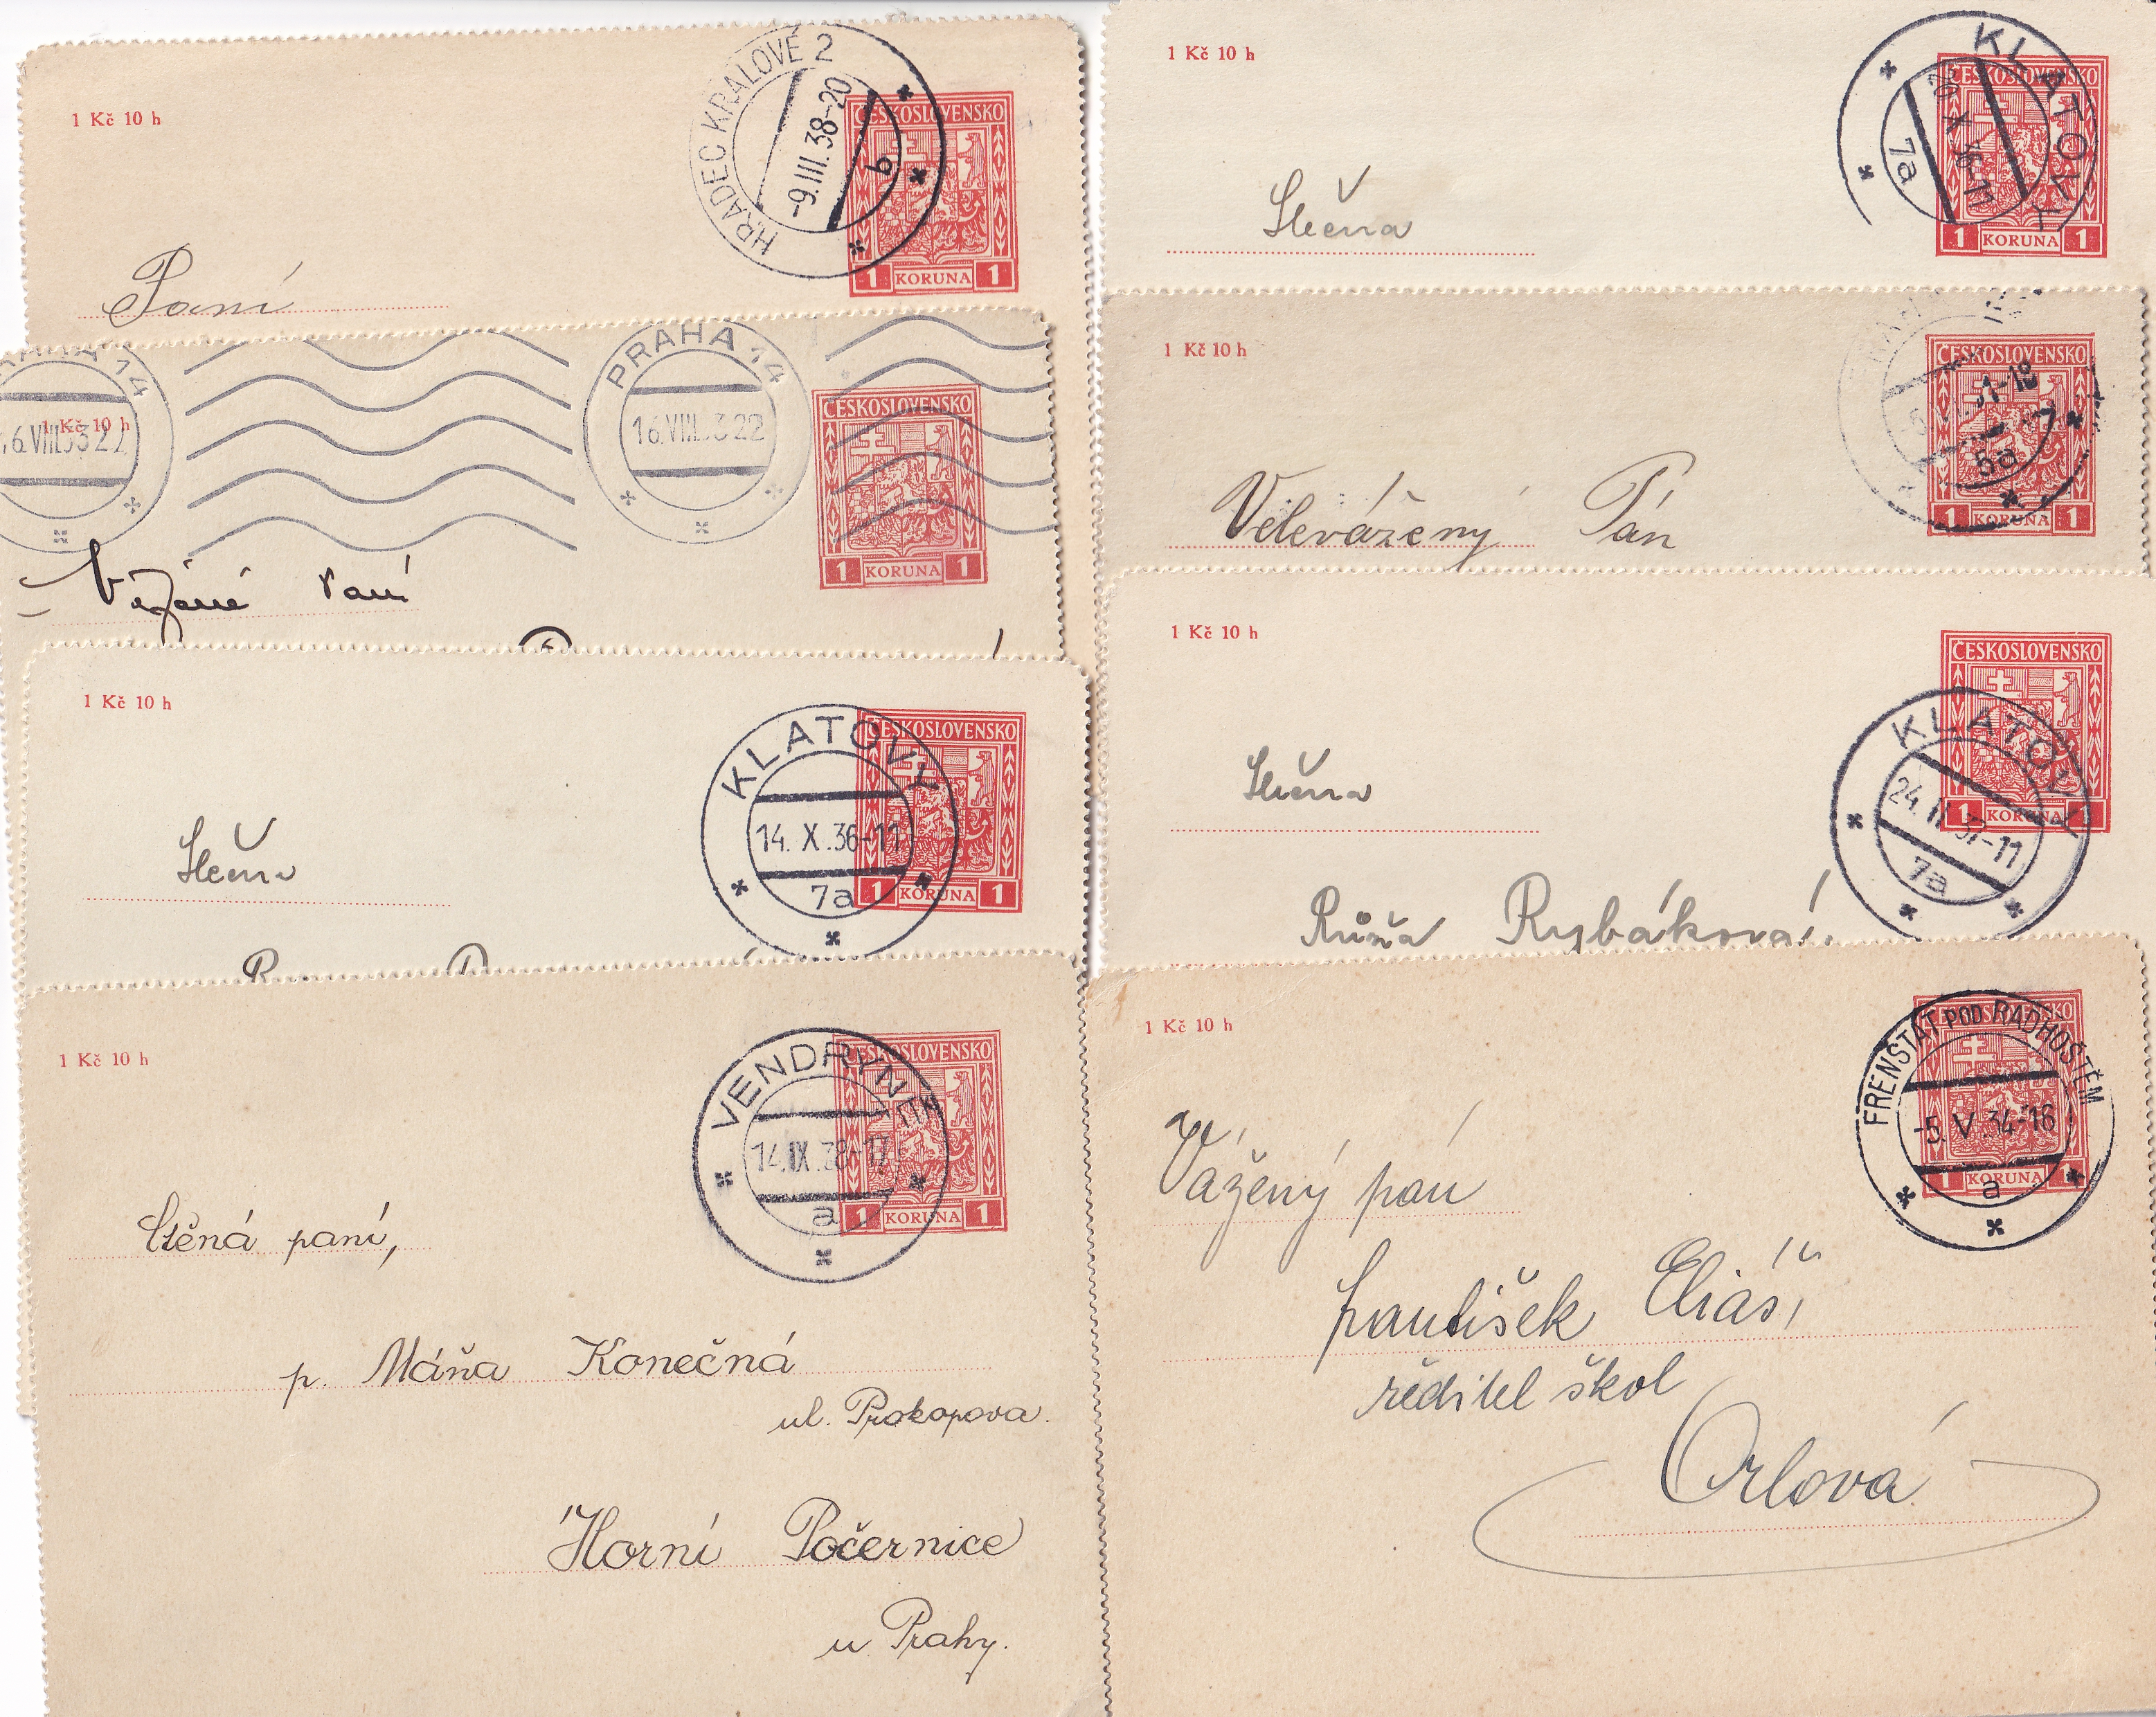 1 Kč 10 h
HRADEC KRÁLOVÉ 2
-9.III.38-20
b
ČESKOSLOVENSKO
1 KORUNA 1
Paní
PRAHA 14
1 Kč 10 h
PRAHA 14
16.VIII. 3 22
ČESKOSLOVENSKO
1 KORUNA 1
Vážené Paní
1 Kč 10 h
KLATOVY
14. X .36-11
7a
ČESKOSLOVENSKO
1 KORUNA 1
Slečna
1 Kč 10 h
VENDRYNĚ
14.IX.38-17
a
ČESKOSLOVENSKO
1 KORUNA 1
Ctěná paní,
p. Máňa Konečná
ul. Prokopova.
Horní Počernice
u Prahy.
1 Kč 10 h
KLATOVY
20 X 36-11
7a
ČESKOSLOVENSKO
1 KORUNA 1
Slečna
1 Kč 10 h
ČESKOSLOVENSKO
1 KORUNA 1
Velevážený Pán
1 Kč 10 h
KLATOVY
24. II 37-11
7a
ČESKOSLOVENSKO
1 KORUNA 1
Slečna
Růža Rybáková,
1 Kč 10 h
FRENŠTÁT POD RADHOŠTĚM
-5. V .34-18
a
ČESKOSLOVENSKO
1 KORUNA 1
Vážený pán
František Eliáš,
ředitel škol
Orlová